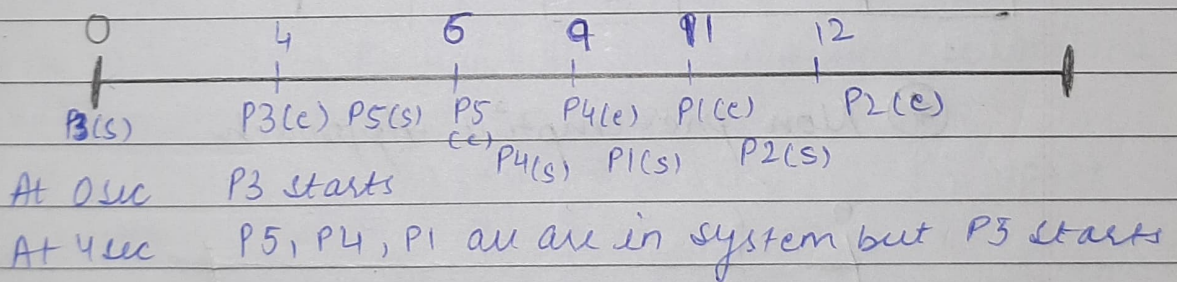 0 4 6 9 11 12
P3(s) P3(e) P5(s) P5 P4(e) P1(e) P2(e)
(e) P4(s) P1(s) P2(s)
At 0 sec P3 starts
At 4 sec P5, P4, P1 all are in system but P5 starts